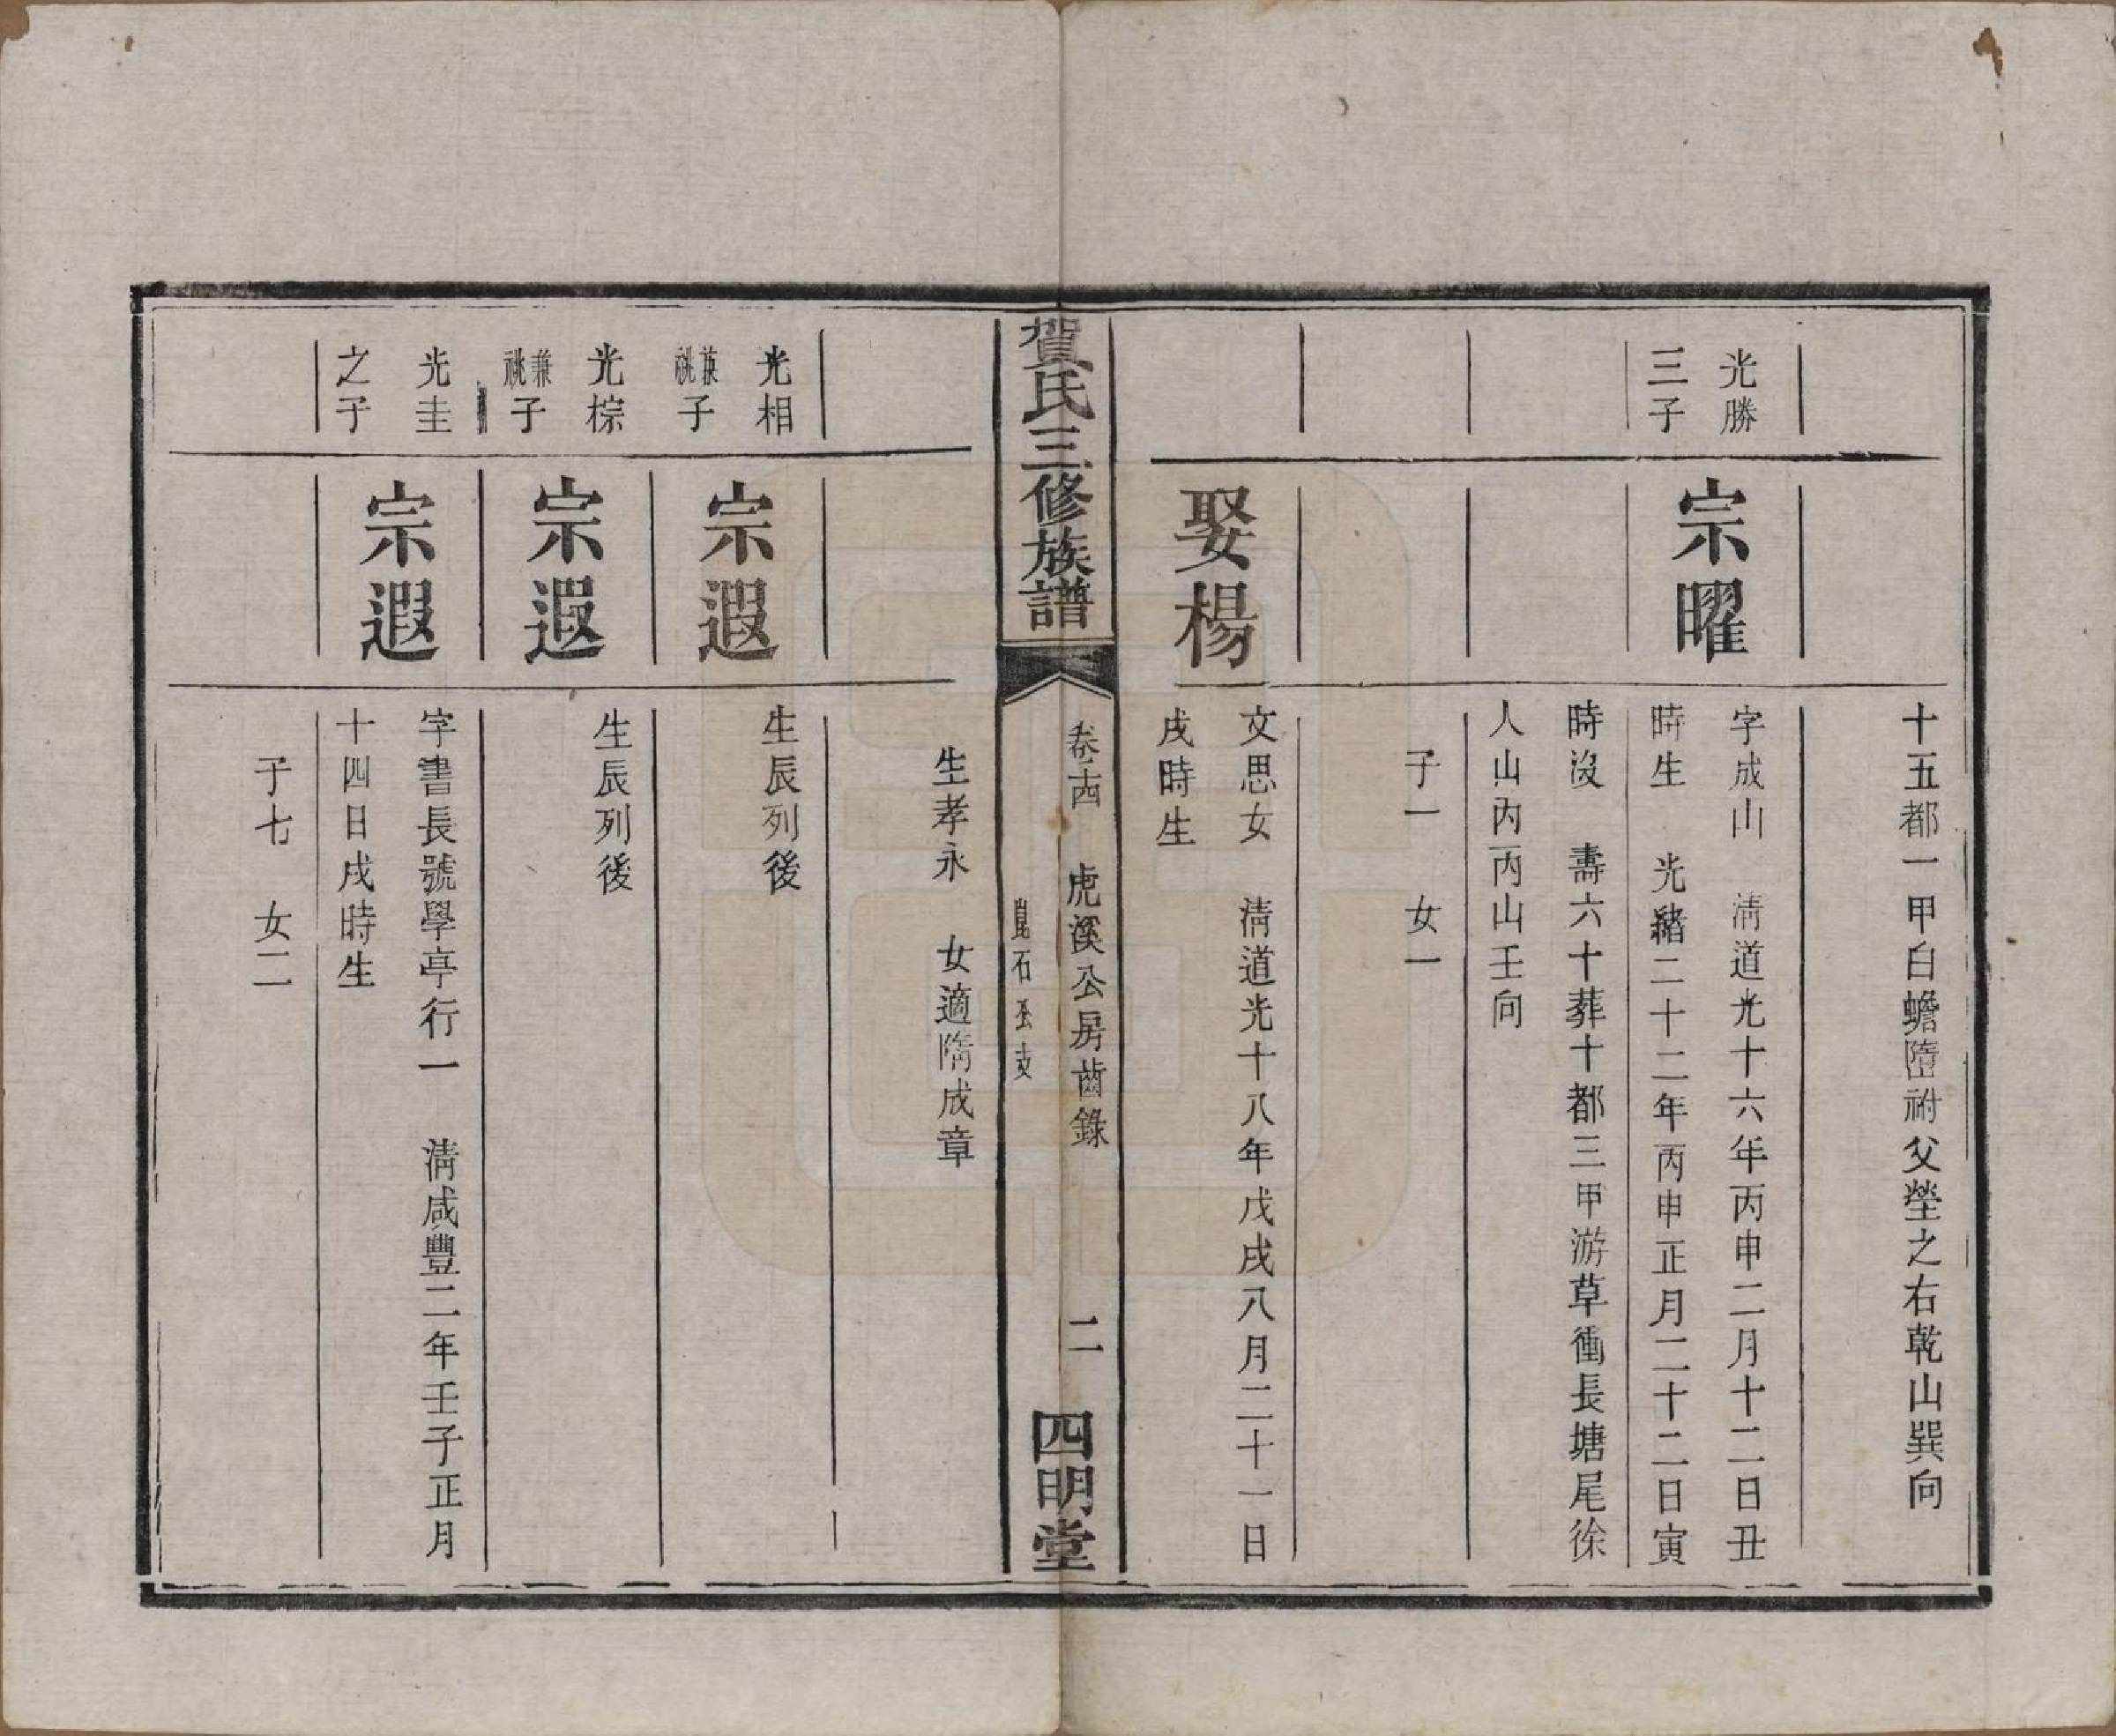 十五都一甲白蟾隋祔父塋之右乾山巽向
光勝
三子
宗曜
字成山 清道光十六年丙申二月十二日丑
時生 光緒二十二年丙申正月二十二日寅
時沒 壽六十葬十都三甲游草衝長塘尾徐
人山內丙山壬向
子一 女一
娶楊
文思女 清道光十八年戊戌八月二十一日
戌時生
賀氏三修族譜
卷十四 虎溪公房齒錄
二
四明堂
生孝永 女適隋成章
光相
兼祧子
宗遐
生辰列後
光棕
兼祧子
宗遐
生辰列後
光圭
之子
宗遐
字書長號學亭行一 清咸豐二年壬子正月
十四日戌時生
子七 女二